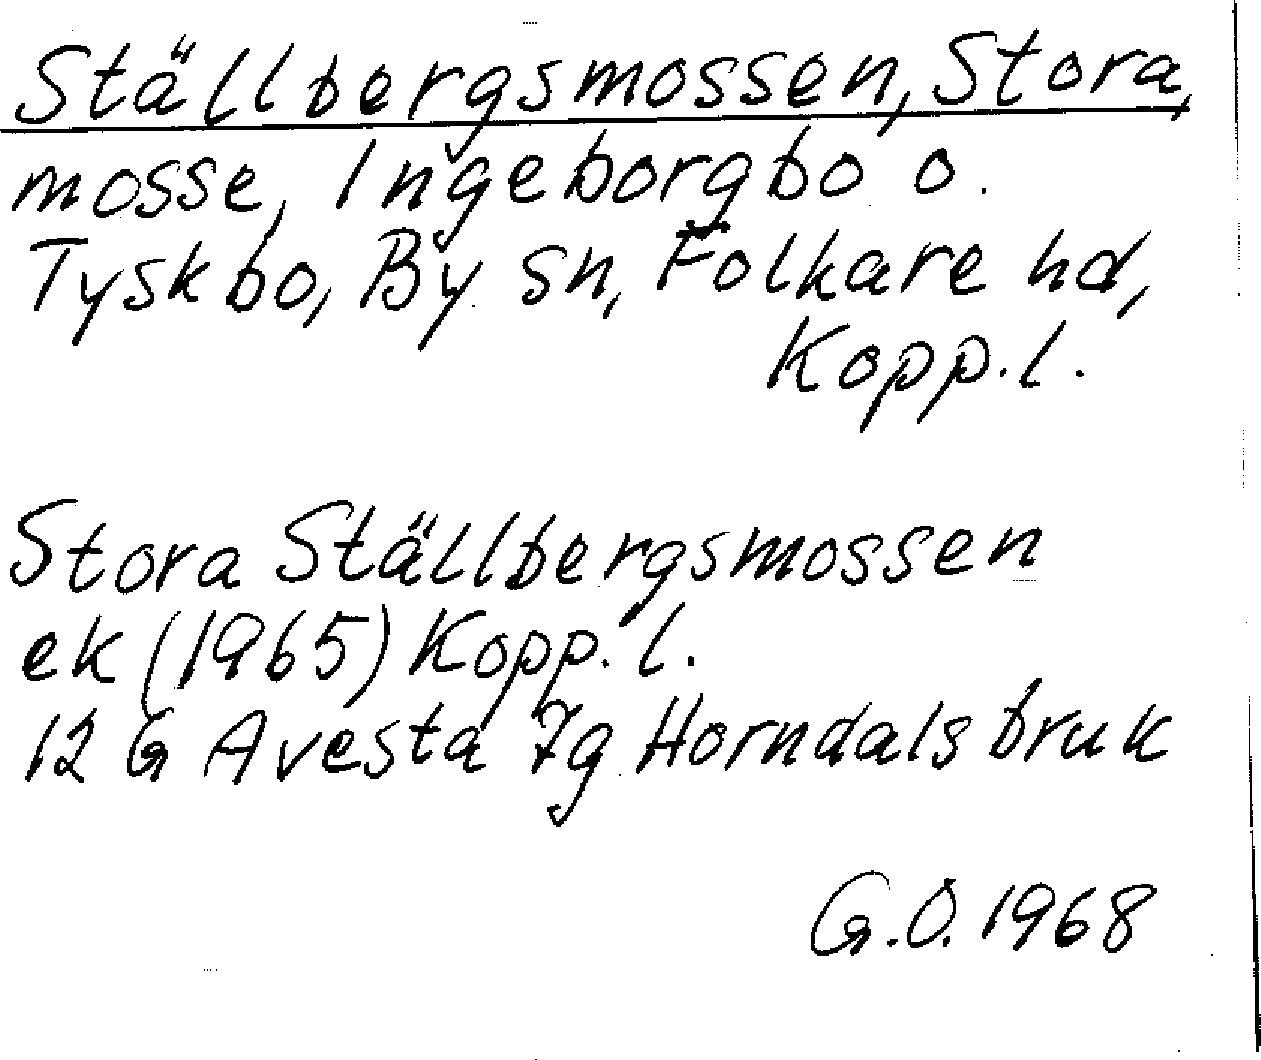 Ställbergsmossen, Stora,
mosse, Ingeborgbo o.
Tyskbo, By sn, Folkare hd,
Kopp.l.
Stora Ställbergsmossen
ek (1965) Kopp.l.
12 G Avesta 7g Horndals bruk
G.O. 1968